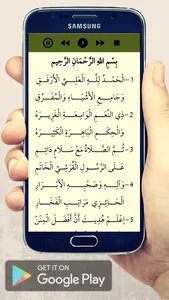 SAMSUNG
بِسْمِ اللهِ الرَّحْمَانِ الرَّحِيْمِ
1 – الْحَمْدُ لِلَّهِ الْعَلِيِّ الْأَرْفَقِ
وَجَامِعِ الْأَشْيَاءِ وَالْمُفَرِّقِ
2 – ذِي النِّعَمِ الْوَاسِعَةِ الْغَزِيْرَهْ
وَالْحِكَمِ الْبَاهِرَةِ الْكَثِيْرَهْ
3 – ثُمَّ الصَّلَاةُ مَعْ سَلَامٍ دَائِمِ
عَلَى الرَّسُوْلِ الْقُرَشِيِّ الْخَاتِمِ
4 – وَآلِهِ وَصَحْبِهِ الْأَبْرَارِ
الْحَائِزِي مَرَاتِبِ الْفَخَارِ
5 – اِعْلَمْ هُدِيْتَ أَنَّ أَفْضَلَ الْمِنَنْ
GET IT ON
Google Play